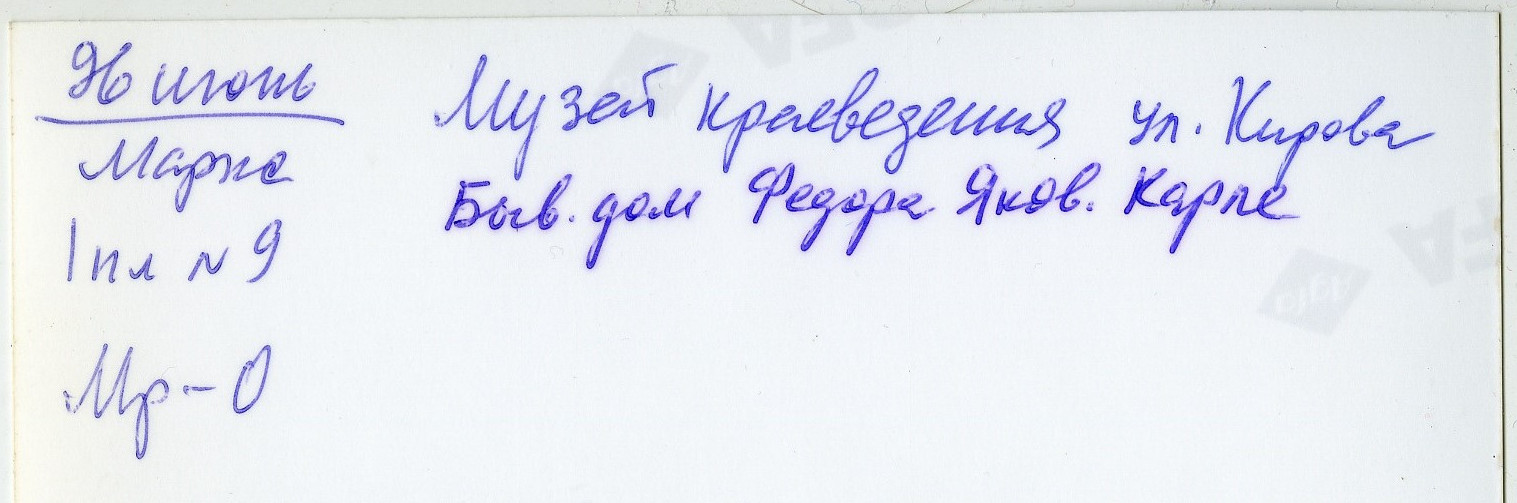 96 июнь
Маркс
1 пл № 9
Мр-0
Музей краеведения ул. Кирова
Быв. дом Федора Яков. Карле
agfa